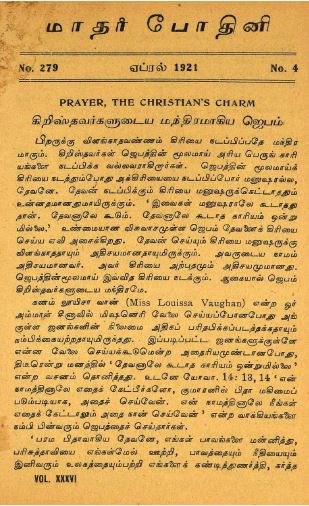 மாதர் போதினி
No. 279 ஏப்ரல் 1921 No. 4
PRAYER, THE CHRISTIAN'S CHARM
கிறிஸ்தவர்களுடைய மந்திரமாகிய ஜெபம்
பிறருக்கு விளங்காதவண்ணம் கிரியை நடப்பிப்பதே மந்திர
மாகும். கிறிஸ்தவர்கள் ஜெபத்தின் மூலமாய் அரிய பெருங் காரி
யங்களை நடப்பிக்க வல்லவராகிறார்கள். ஜெபத்தின் மூலமாய்க்
கிரியை நடத்தும்போது அக்கிரியையை நடப்பிப்போர் மனுஷரல்ல,
தேவனே. தேவன் நடப்பிக்கும் கிரியை மனுஷருக்கெட்டாததும்
உன்னதமானதுமாயிருக்கும். 'இவைகள் மனுஷராலே கூடாதது
தான், தேவனாலே கூடும். தேவனாலே கூடாத காரியம் ஒன்று
மில்லை.' உண்மையான விசுவாசமுள்ள ஜெபம் தேவனைக் கிரியை
செய்ய ஏவி அசைக்கிறது. தேவன் செய்யும் கிரியை மனுஷருக்கு
விளங்காததாயும் அதிசயமானதாயுமிருக்கும். அவருடைய நாமம்
அதிசயமானவர். அவர் கிரியை அற்புதமும் அதிசயமுமானது.
ஜெபத்தின்மூலமாய் இவ்வித கிரியை நடக்கும். ஆகையால் ஜெபம்
கிறிஸ்தவர்களுடைய மந்திரமே.
கனம் லூயிசா வான் (Miss Louissa Vaughan) என்ற ஓர்
அம்மாள் சீனாவில் மிஷனெரி வேலை செய்யப்போனபோது அங்
குள்ள ஜனங்களின் நிலைமை அதிகப் பரிதபிக்கப்படத்தக்கதாயும்
நம்பிக்கையற்றதாயுமிருந்தது. இப்படிப்பட்ட ஜனங்களுக்குள்ளே
என்ன வேலை செய்யக்கூடுமென்ற அதைரியமுண்டானபோது,
திடீரென்று மனத்தில் 'தேவனாலே கூடாத காரியம் ஒன்றுமில்லை'
என்ற வசனம் தொனித்தது. உடனே யோவா. 14: 13, 14 'என்
நாமத்தினாலே எதைக் கேட்பீர்களோ, குமாரனில் பிதா மகிமைப்
படும்படியாக, அதைச் செய்வேன். என் நாமத்தினாலே நீங்கள்
எதைக் கேட்டாலும் அதை நான் செய்வேன்' என்ற வாக்கியங்களை
நம்பி பின்வரும் ஜெபத்தைச் செய்தார்கள்.
'பரம பிதாவாகிய தேவனே, எங்கள் பாவங்களை மன்னித்து,
பரிசுத்தாவியை எங்கள்மேல் ஊற்றி, பாவத்தையும் நீதியையும்
இனிவரும் உலகத்தையும்பற்றி எங்களைக் கண்டித்துணர்த்தி, கர்த்த
VOL. XXXVI